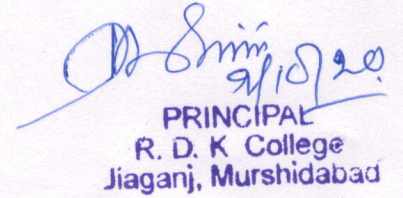 9/10/20
PRINCIPAL
R. D. K College
Jiaganj, Murshidabad